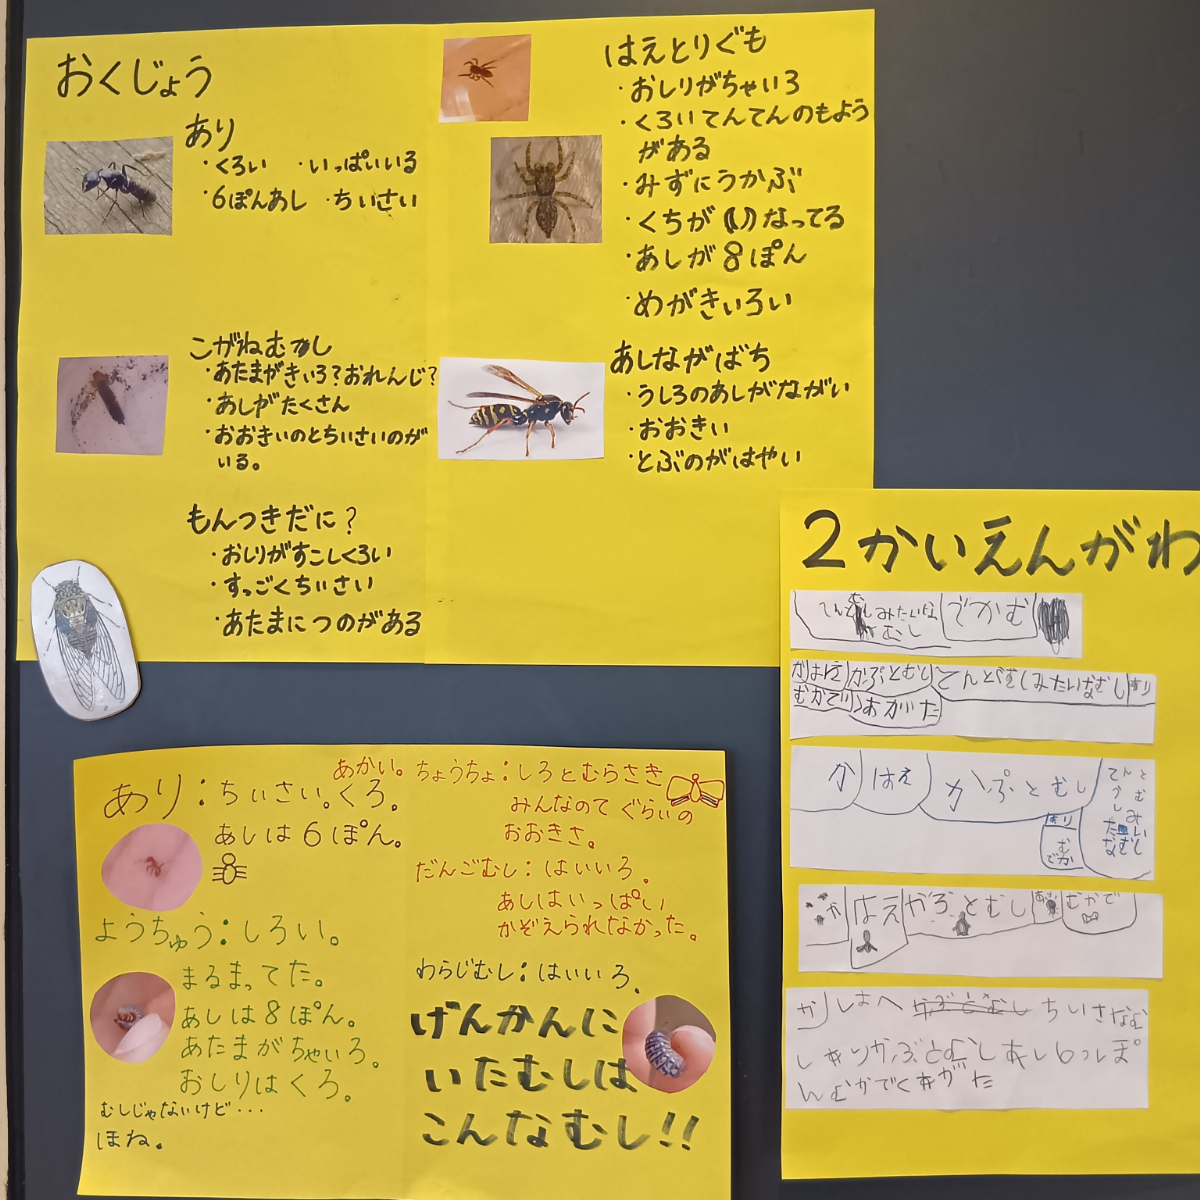 おくじょう
あり
・くろい ・いっぱいいる
・6ぽんあし ・ちいさい
こがねむし
・あたまがきいろ?おれんじ?
・あしがたくさん
・おおきいのとちいさいのが
いる。
もんつきだに?
・おしりがすこしくろい
・すっごくちいさい
・あたまにつのがある
はえとりぐも
・おしりがちゃいろ
・くろいてんてんのもよう
がある
・みずにうかぶ
・くちが()なってる
・あしが8ぽん
・めがきいろい
あしながばち
・うしろのあしがながい
・おおきい
・とぶのがはやい
あり:ちいさい。くろ。
あかい。
あしは6ぽん。
ようちゅう:しろい。
まるまってた。
あしは8ぽん。
あたまがちゃいろ。
おしりはくろ。
むしじゃないけど・・・
ほね。
ちょうちょ:しろとむらさき
みんなのてぐらいの
おおきさ。
だんごむし:はいいろ。
あしはいっぱい
かぞえられなかった。
わらじむし:はいいろ。
げんかんに
いたむしは
こんなむし!!
2かいえんがわ
みたいな
むし
でかむ
かはえ
かぷとむし
てんとむしみたいなむし
あり
むかで
あがた
か
はえ
かぷとむし
てんとうむしみたいなむし
あり
むかで
か
はえ
かぶとむし
あり
むかで
ちいさなむ
しありかぶとむしあし6っぽ
んむかでくあがた